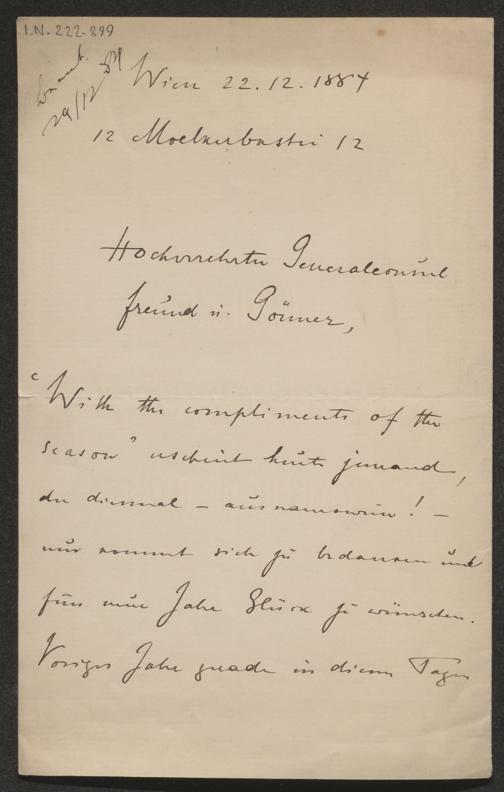 I.N. 222.899
29/12 84
Wien 22.12.1884
12 Moelkerbastei 12
Hochverehrter Generalconsul
Freund u. Gönner,
"With the compliments of the
season" erscheint heute jemand,
der diesmal – ausnamsweise! –
nur kommt sich zu bedanken und
fürs neue Jahr Glück zu wünschen.
Voriges Jahr gerade in diesen Tagen